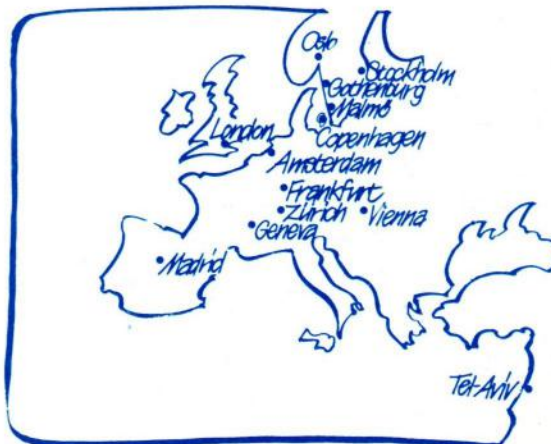 Oslo
Stockholm
Gothenburg
Malmö
Copenhagen
London
Amsterdam
Frankfurt
Zürich
Vienna
Geneva
Madrid
Tel-Aviv